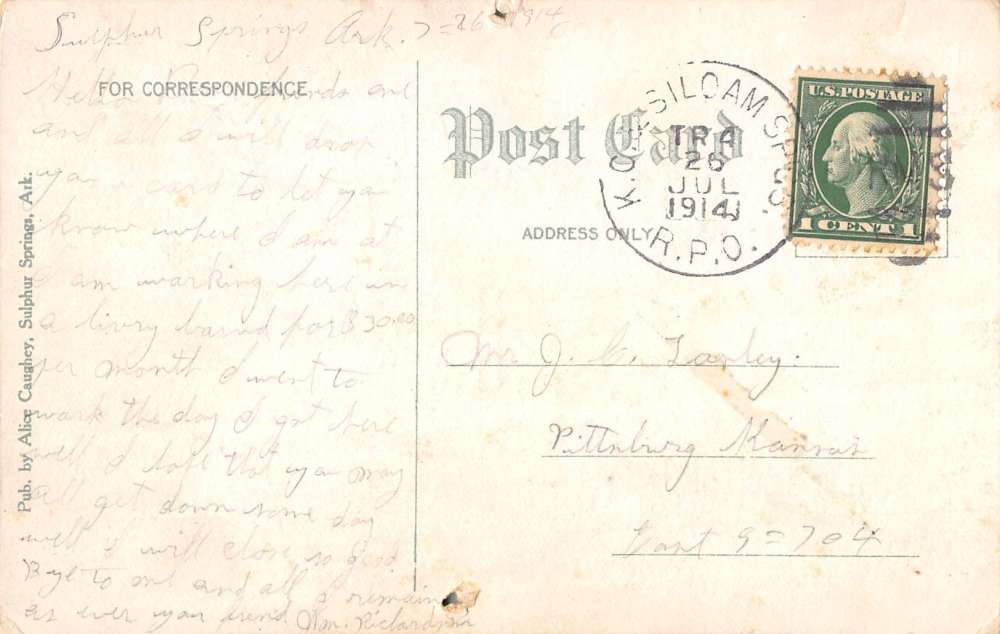 Sulphur Springs Ark. 7=26 1914
FOR CORRESPONDENCE
Hello friends one
and all I will drop
you a card to let you
know where I am at
I am warking here in
a livry barnd for $30.00
per month I went to
wark the day I got here
well I hope that you may
all get down some day
well I will close so good
Bye to one and all I remain
as ever your friend Wm. Richardson
Pub. by Alice Caughey, Sulphur Springs, Ark.
Post Card
ADDRESS ONLY
SILOAM SPRGS.
TR4
26
JUL
1914
R.P.O.
U.S. POSTAGE
1 CENT 1
Mr J. C.
Pittsburg Kansas
9=704